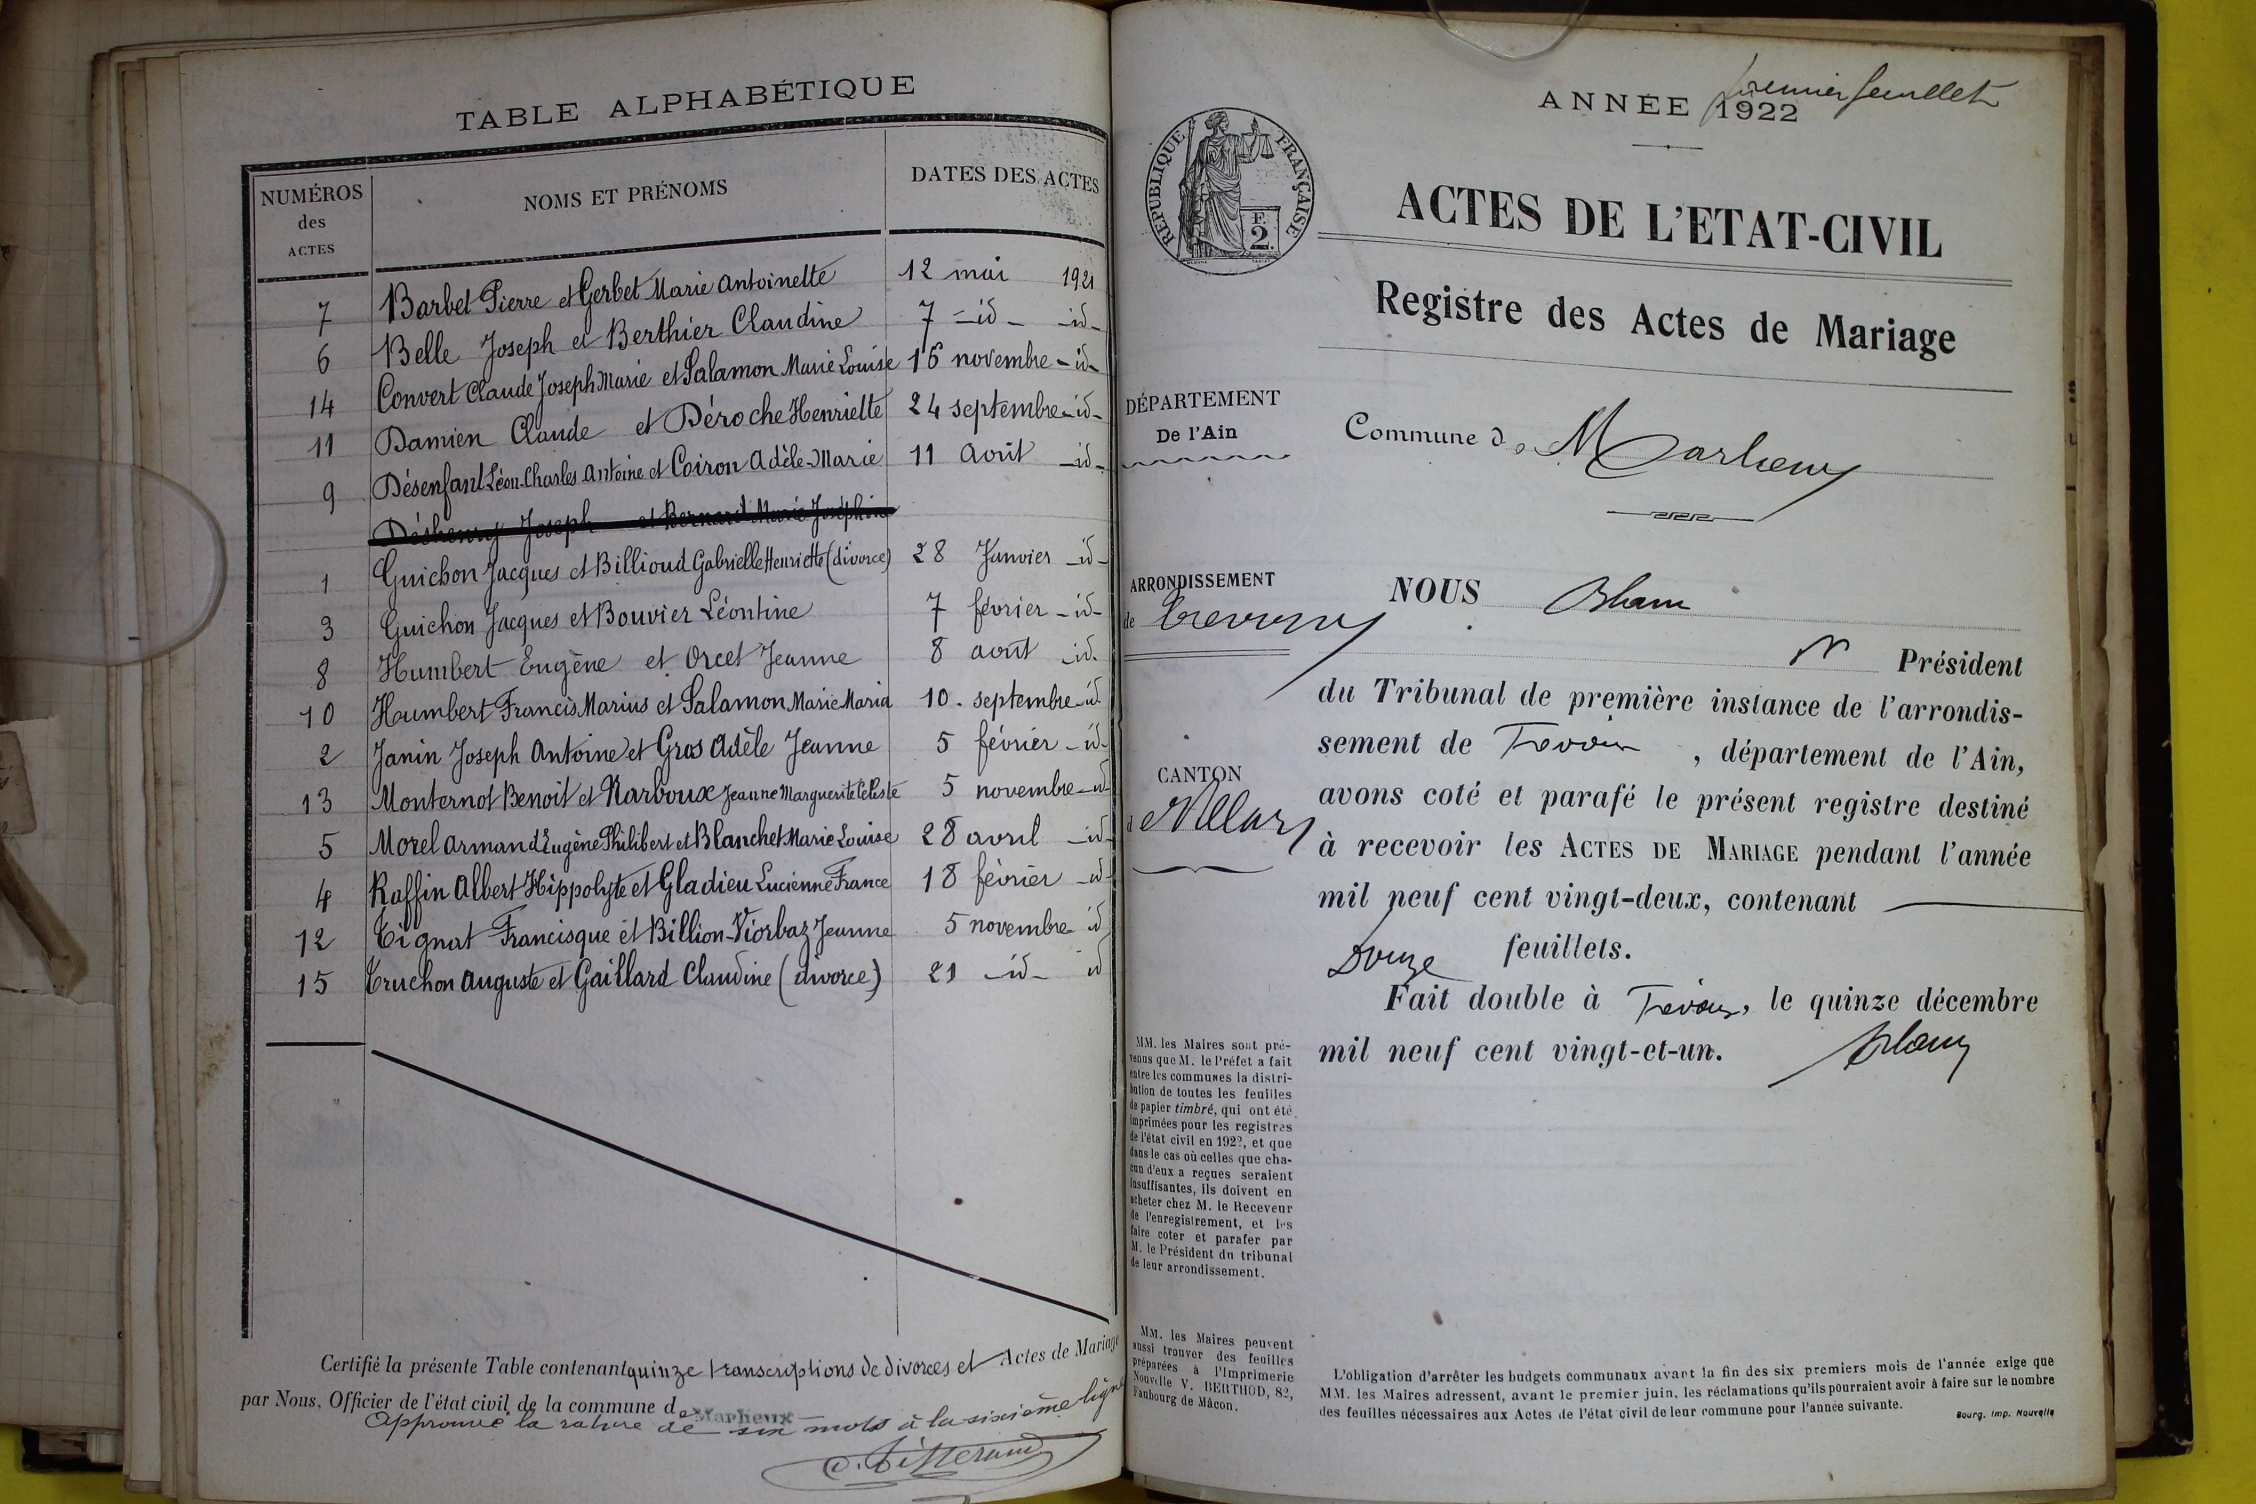 TABLE ALPHABÉTIQUE
NUMÉROS des ACTES
NOMS ET PRÉNOMS
DATES DES ACTES
7 Barbet Pierre et Gerbet Marie Antoinette 12 mai 1921
6 Belle Joseph et Berthier Claudine 7 -id- -id-
14 Convert Claude Joseph Marie et Salamon Marie Louise 15 novembre -id-
11 Damien Claude et Déroche Henriette 24 septembre -id-
9 Désenfant Léon-Charles Antoine et Coiron Adèle-Marie 11 Août -id-
Joseph et Bernard Marie Joséphine
1 Guichon Jacques et Billioud Gabrielle Henriette (divorce) 28 Janvier -id-
3 Guichon Jacques et Bouvier Léontine 7 février -id-
8 Humbert Eugène et Orcet Jeanne 8 août -id-
10 Humbert Francis Marius et Salamon Marie Maria 10. septembre -id
2 Janin Joseph Antoine et Gros Adèle Jeanne 5 février -id-
13 Monternot Benoit et Narboux Jeanne Marguerite Céleste 5 novembre -id
5 Morel Armand Eugène Philibert et Blanchet Marie Louise 28 avril -id-
4 Raffin Albert Hippolyte et Gladieu Lucienne France 18 février -id-
12 Tignat Francisque et Billion-Viorbaz Jeanne 5 novembre id
15 Truchon Auguste et Gaillard Claudine (divorce) 21 -id- id
Certifié la présente Table contenant quinze transcriptions de divorces et Actes de Mariage
par Nous, Officier de l'état civil de la commune de Marlieux
Approuvé la rature de six mots à la sixième ligne
premier feuillet
ANNÉE 1922
RÉPUBLIQUE FRANÇAISE
F.
2.
ACTES DE L'ETAT-CIVIL
Registre des Actes de Mariage
DÉPARTEMENT
De l'Ain
Commune de Marlieux
ARRONDISSEMENT
de Trévoux
CANTON
de Villars
NOUS
Président
du Tribunal de première instance de l'arrondis-
sement de Trévoux, département de l'Ain,
avons coté et parafé le présent registre destiné
à recevoir les ACTES DE MARIAGE pendant l'année
mil neuf cent vingt-deux, contenant
Douze feuillets.
Fait double à Trévoux, le quinze décembre
mil neuf cent vingt-et-un.
MM. les Maires sont pré-
venus que M. le Préfet a fait
entre les communes la distri-
bution de toutes les feuilles
de papier timbré, qui ont été
imprimées pour les registres
de l'état civil en 1922, et que
dans le cas où celles que cha-
cun d'eux a reçues seraient
insuffisantes, ils doivent en
acheter chez M. le Receveur
de l'enregistrement, et les
faire coter et parafer par
M. le Président du tribunal
de leur arrondissement.
MM. les Maires peuvent
aussi trouver des feuilles
préparées à l'Imprimerie
Nouvelle V. BERTHOD, 82,
Faubourg de Mâcon.
L'obligation d'arrêter les budgets communaux avart la fin des six premiers mois de l'année exige que
MM. les Maires adressent, avant le premier juin, les réclamations qu'ils pourraient avoir à faire sur le nombre
des feuilles nécessaires aux Actes de l'état civil de leur commune pour l'année suivante.
Bourg. Imp. Nouvelle